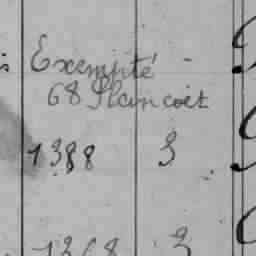 Exempté
68 Plancoët
1388 3
1368 3